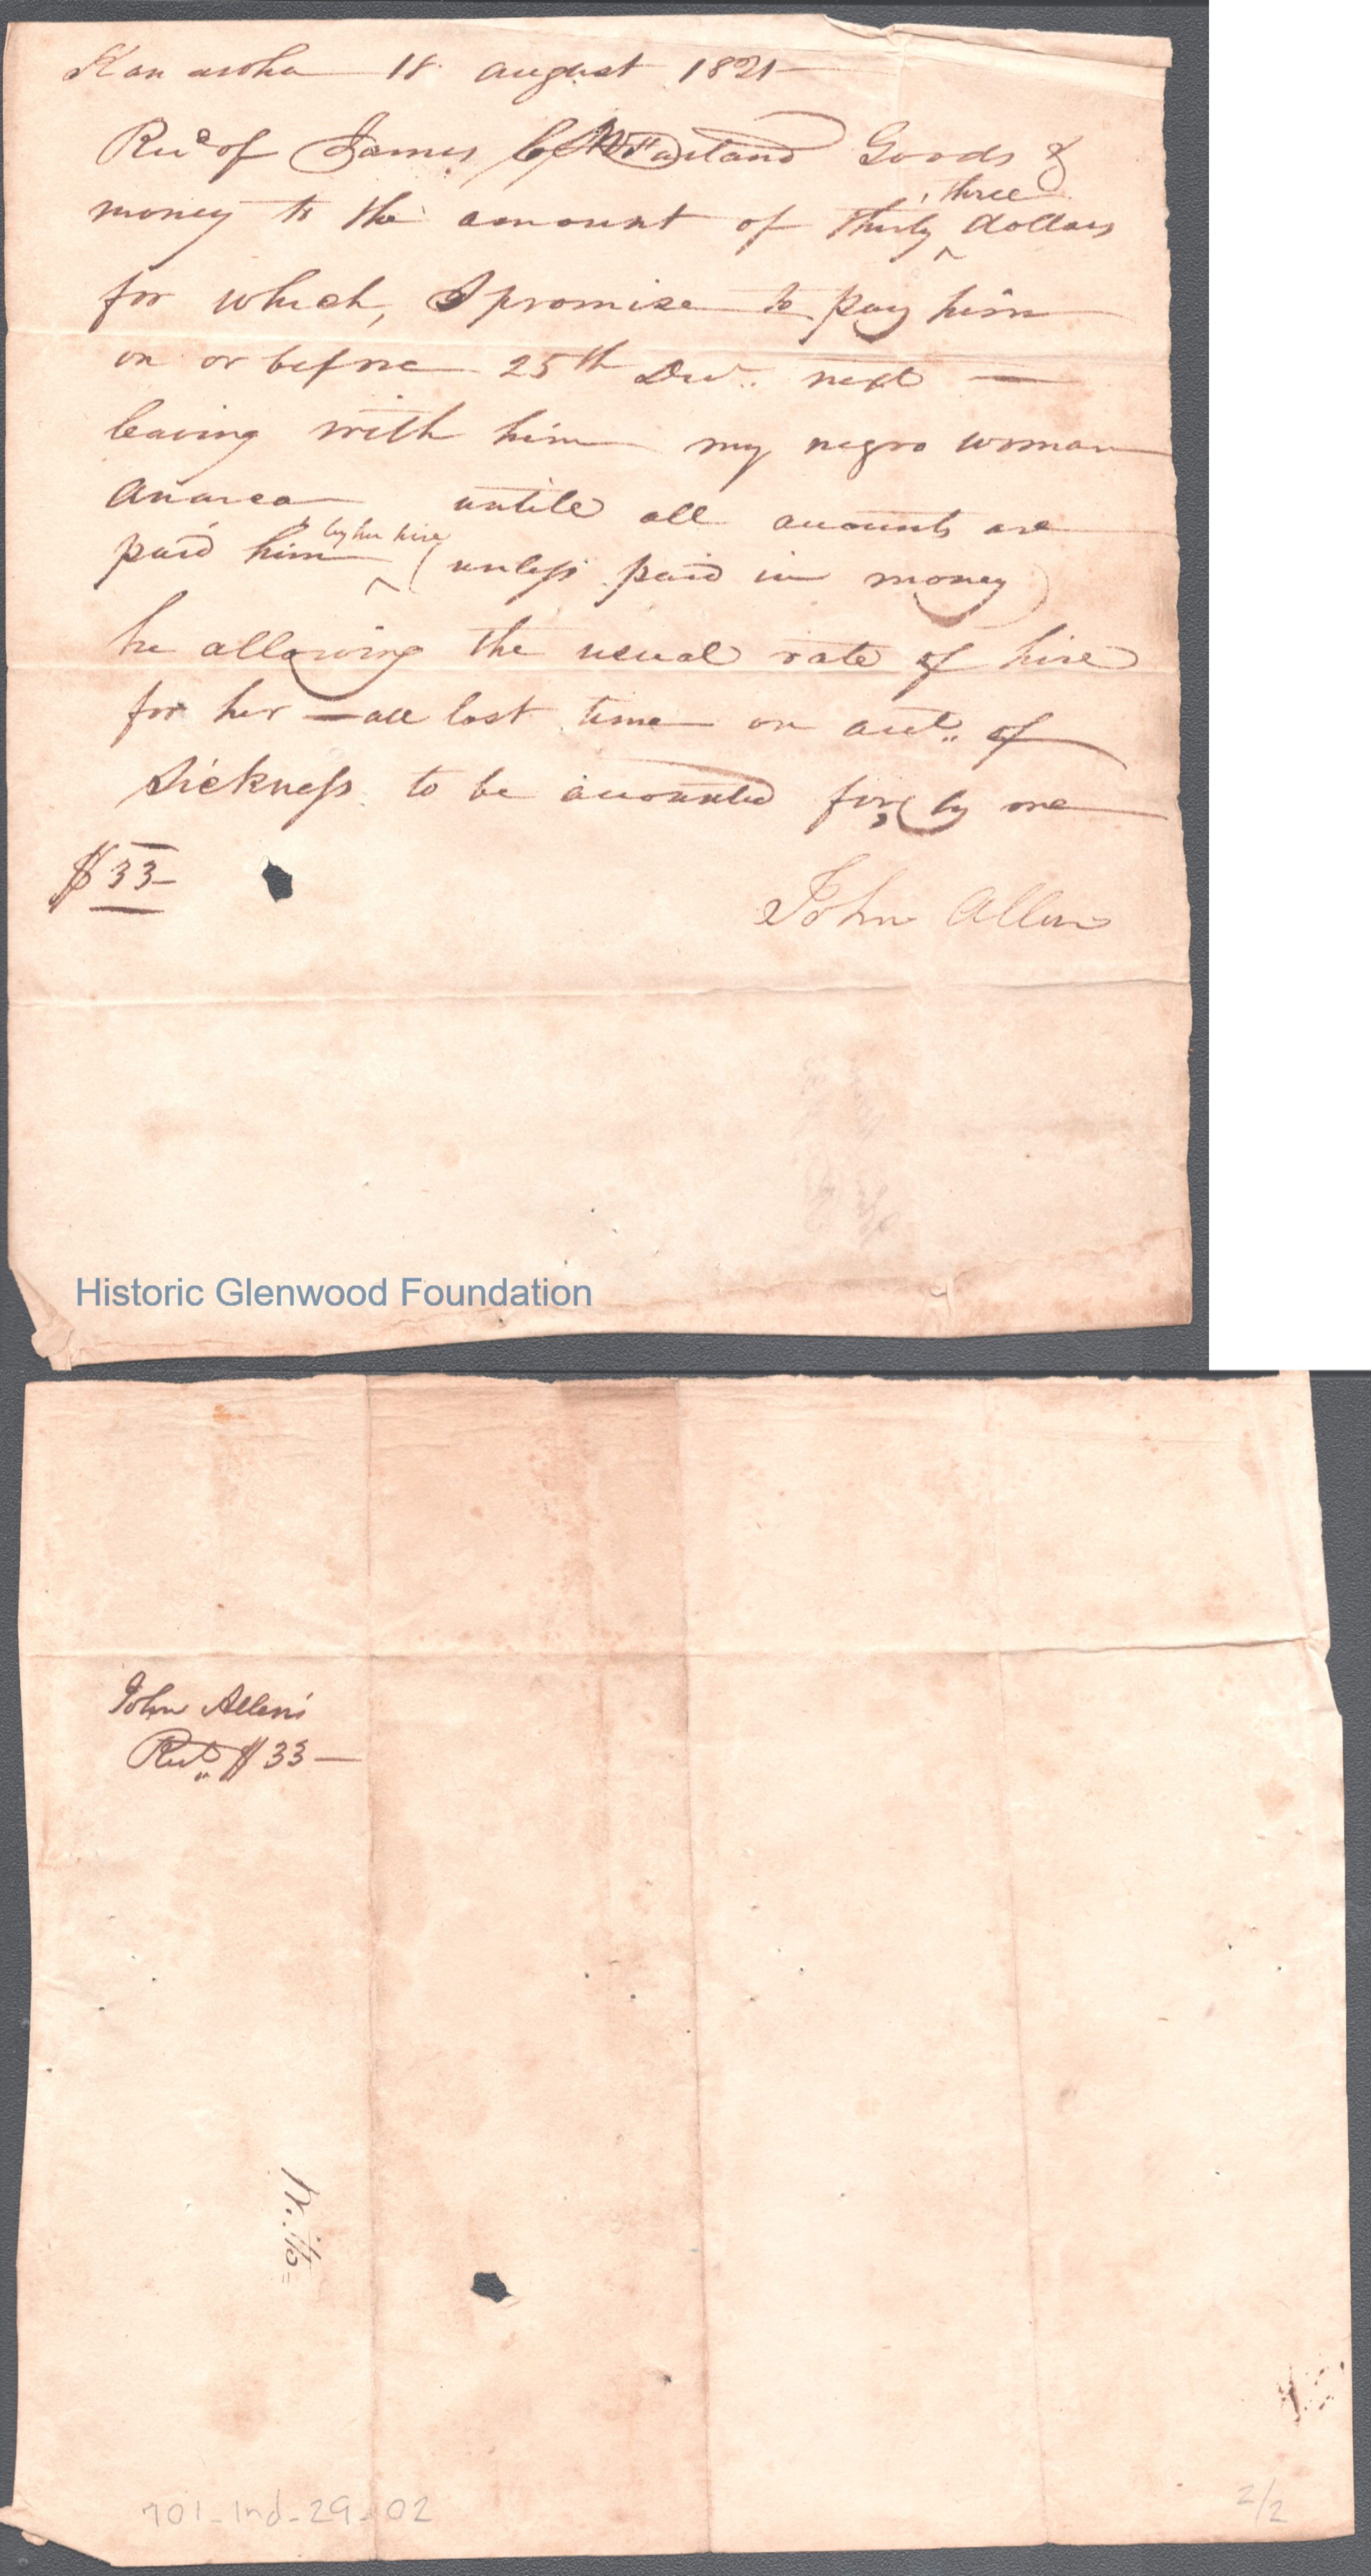 Kanawha 18 august 1821
Recd of James C McFarland Goods &
money to the amount of thirty ^three dollars
for which, I promise to pay him
on or before 25th Decr. next —
leaving with him my negro woman
until all accounts are
paid him ^by her hire (unless paid in money)
he allowing the usual rate of hire
for her — all lost time on acct. of
Sickness to be accounted for, by me
$33—
John Allen
Historic Glenwood Foundation
John Allen's
Rect. $33—
701-Ind-29-02
2/2